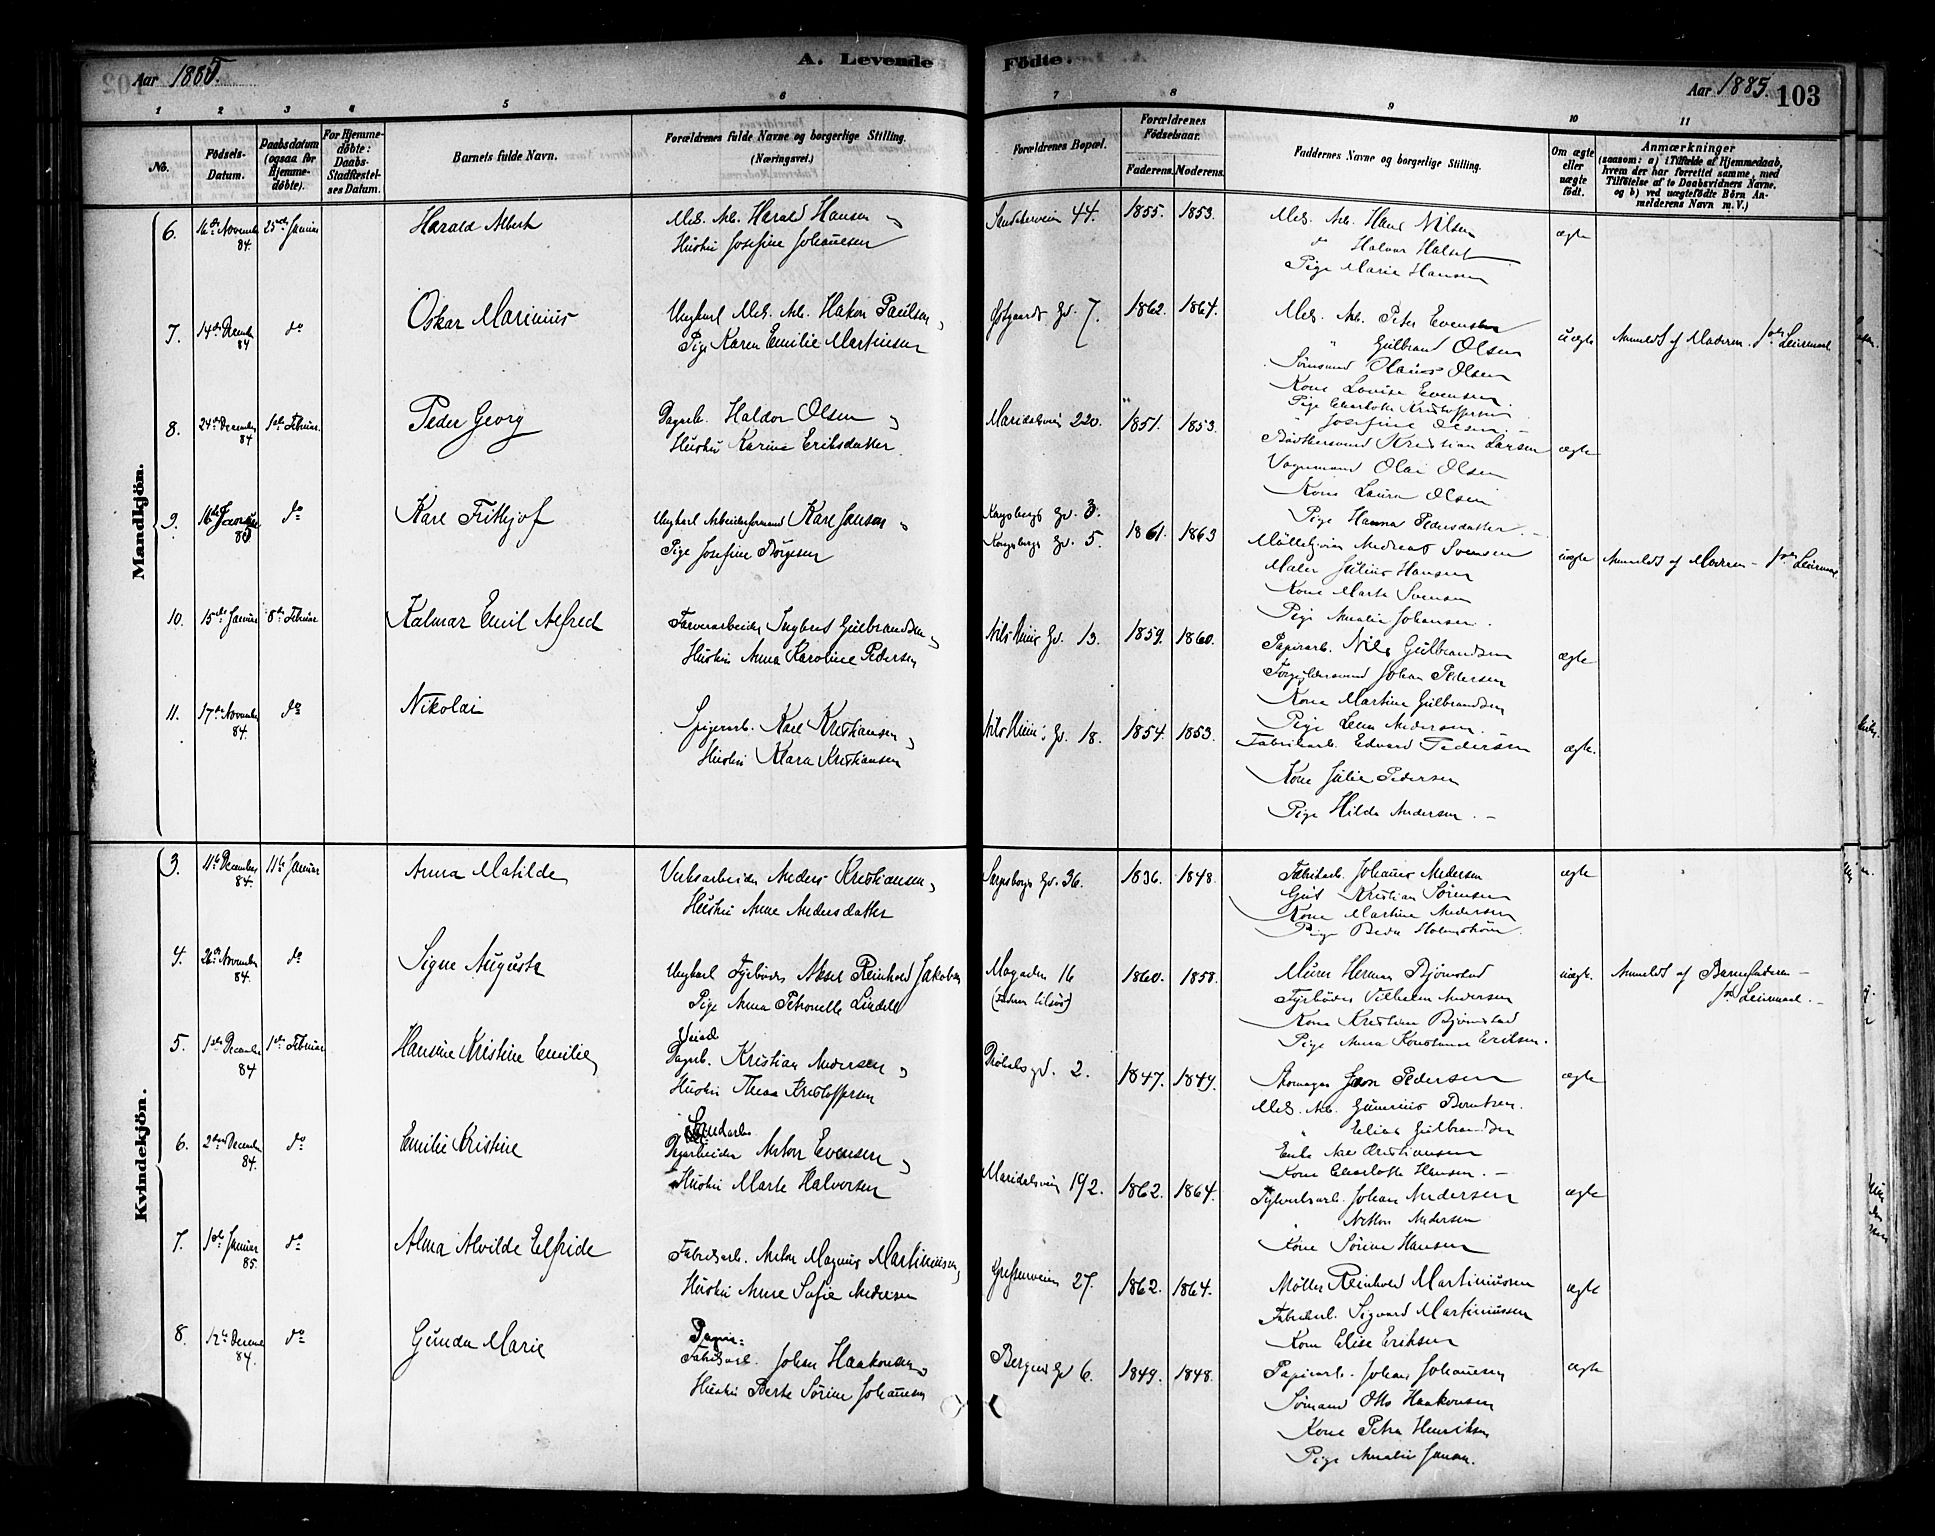 Aar 1885.
A. Levende
Fødte.
Aar 1885.
103
1 2 3 4 5 6 7 8 9 10 11
No.
Fødsels-Datum.
Daabsdatum (ogsaa for Hjemme-døbte).
For Hjemme-døbte: Daabs-Stadfæstel-ses Datum.
Barnets fulde Navn.
Forældrenes fulde Navne og borgerlige Stilling. (Næringsvei.)
Forældrenes Bopæl.
Forældrenes Fødselsaar.
Faderens. Moderens.
Faddernes Navne og borgerlige Stilling.
Om ægte eller uægte født.
Anmærkninger
(saasom: a) i Tilfælde af Hjemmedaab, hvem der har forrettet samme, med Tilføielse af to Daabsvidners Navne, og b) ved uægtefødte Børn An-melderens Navn m. V.)
Mandkjön.
6. 16de Novembr 84. 25de Januar Harald Albert
Mek. Arb. Harald Hansen
Hustru Josefine Johannesen
44. 1855. 1853.
Mek. Arb. Hans Nilsen
do Halvor Halset
Pige Marie Hansen
ægte
7. 14de Decembr 84 do Oskar Marinius
Ungkarl Mek. Arb. Hakon Paulsen
Pige Karen Emilie Martinsen
Østgaards Gd. 7. 1862. 1864.
Mek. Arb. Peter Evensen
" Gulbrand Olsen
Sømand Olaus Olsen
Kone Lovise Evensen
Pige Charlotte Kristoffersen
" Josefine Olsen
uægte Anmeldt af Moderen. for Leiermaal
8. 24de Decembr 84 1ste Februar Peder Georg
Dagarb. Haldor Olsen
Hustru Karine Eriksdatter
Maridalsveien 220. 1851. 1853.
Bødkersvend Kristian Larsen
Vognmand Olai Olsen
Kone Laura Olsen
Pige Hanna Pedersdatter
ægte
9. 16de Januar 85 do Karl Frithjof
Ungkarl Arbeidsformand Karl Jansen
Pige Josefine Børgesen
Kongsbergs Gd. 3.
Kongsbergs Gd. 5. 1861. 1863
Andreas Svensen
Maler Julius Hansen
Kone Marte Svensen
Pige Amalie Johansen
uægte Anmeldt af Moderen - for Leiermaal
10. 15de Januar 8de Februar Kalmar Emil Alfred
Farverarbeider Ingbret Gulbrandsen
Hustru Anna Karoline Pedersen
Nils Huus Gd. 13. 1859. 1860.
Papirarb. Nils Gulbrandsen
Johan Pedersen
Kone Martine Gulbrandsen
Pige Lena Andersen
ægte
11. 17de Novembr 84. do Nikolai
Spigerarb. Karl Kristiansen
Hustru Klara Kristiansen
Nils Huus Gd. 18. 1854. 1853.
Fabrikarb. Edvard Pedersen
Kone Julie Pedersen
Pige Hilda Andersen
ægte.
Kvindekjön.
3. 11te Decembr 84. 11te Januar Anna Matilde
Verksarbeider Anders Kristiansen
Hustru Anne Andersdatter
Sarpsborgs Gd. 36. 1836. 1848.
Fabrikarb. Johannes Andersen
Kristian Sørensen
Kone Martine Andersen
Pige Beda Holmstrøm
ægte
4. 26de Novembr 84. do Signe Augusta
Ungkarl Fyrbøder Aksel Reinhold Jakobsen
Pige Anna Petronelle Lindahl
16 1860. 1858.
Murer Herman Bjørnstad
Fyrbøder Vilhelm Andersen
Kone Kristine Bjørnstad
Pige Anna Konstanse Eriksen.
uægte. Anmeldt af Barnefaderen -
for Leiermaal. -
5. 1ste Decembr 84 1ste Februar Hansine Kristine Emilie
Dagarb. Kristian Andersen
Hustru Thea Kristoffersen
Drøbaks gd. 2. 1847. 1849.
Skomager Jon Pedersen
Mek. Arb. Gunerius Berntsen.
" Elias Gulbrandsen
Enke Kristiansen
Kone Charlotte Hansen. -
ægte
6. 2den Decembr 84. do Emilie Kristine
Dagarbeider Anton Evensen
Hustru Marte Halvorsen
Maridalsveien 192. 1862. 1864.
Johan Andersen
Anton Andersen
Kone Sørine Hansen
ægte
7. 1ste Januar 85. do Alma Alvilde Elfride
Fabrikarb. Anton Magnus Martinusen
Hustru Anne Sofie Andersen
Grefsenveien 27. 1862. 1864.
Møller Reinhold Martiniussen
Fabrikarb. Sigvard Martiniussen
Kone Elise Eriksen
ægte
8. 12te Decembr 84. do Gunda Marie
Papir:
Fabrikarb. Johan Haakonsen
Hustru Berte Sørine Johannesen
Bergens Gd 6. 1849. 1848.
Papirarb. Johan Johannesen
Sømand Otto Haakonsen
Kone Petra Henriksen
Pige Amalie Jansen.
ægte